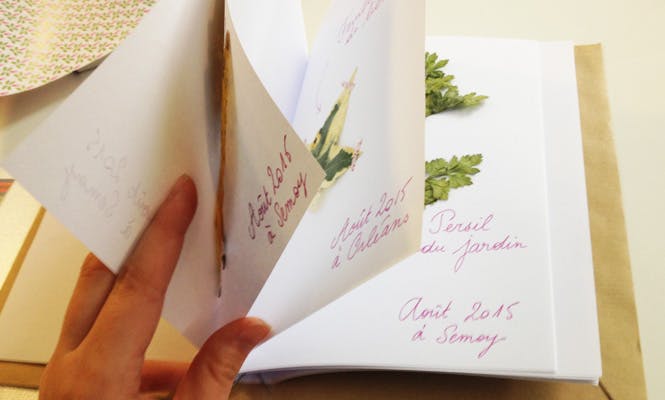 Août 2015
à Semoy
Août 2015
à Orléans
Persil
du jardin
Août 2015
à Semoy